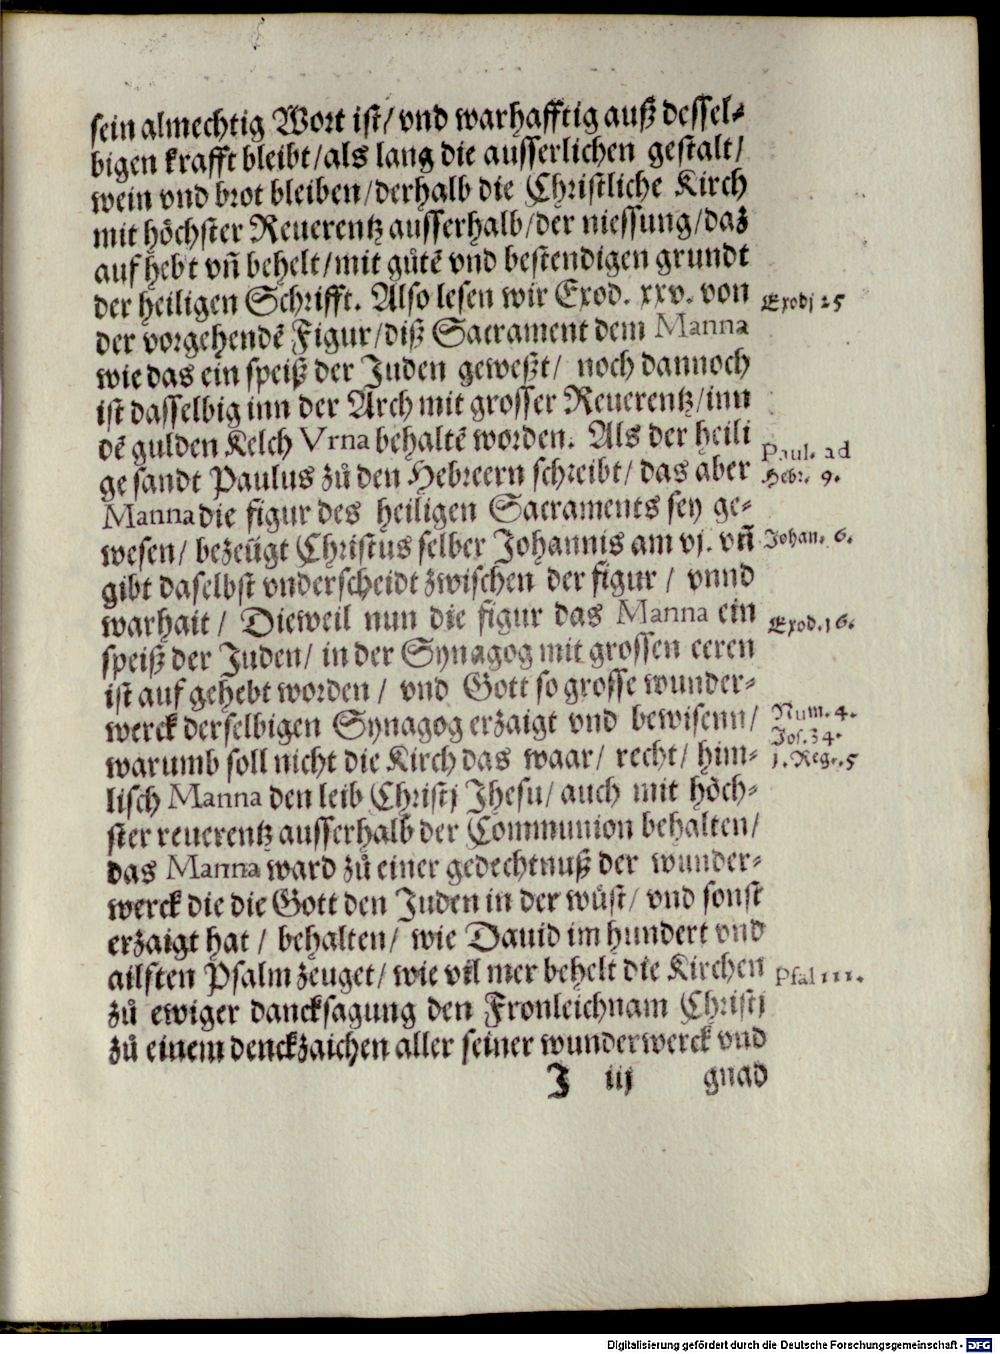 sein almechtig Wort ist/ vnd warhafftig auß dessel-
bigen krafft bleibt/als lang die ausserlichen gestalt/
wein vnd brot bleiben/derhalb die Christliche Kirch
mit höchster Reuerentz ausserhalb/der niessung/daz
auf hebt vñ behelt/mit gůtē vnd bestendigen grundt
der heiligen Schrifft. Also lesen wir Exod. xxv. von
Exodj 25
der vorgehendē Figur/diß Sacrament dem Manna
wie das ein speiß der Juden geweßt/ noch dannoch
ist dasselbig inn der Arch mit grosser Reuerentz/inn
dē gulden Kelch Vrna behaltē worden. Als der heili
Paul. ad
ge sandt Paulus zů den Hebreern schreibt/ das aber
Hebr. 9.
Manna die figur des heiligen Sacraments sey ge-
wesen/ bezeügt Christus selber Johannis am vj. vñ
Johan. 6.
gibt daselbst vnderscheidt zwischen der figur / vnnd
warhait / Dieweil nun die figur das Manna ein
Exod.16.
speiß der Juden/ in der Synagog mit grossen eeren
ist auf gehebt worden / vnd Gott so grosse wunder-
werck derselbigen Synagog erzaigt vnd bewisenn/
Num. 4.
Jos. 34.
warumb soll nicht die Kirch das waar/ recht/ him-
1. Reg. 5
lisch Manna den leib Christj Jhesu/ auch mit höch-
ster reuerentz ausserhalb der Communion behalten/
das Manna ward zů einer gedechtnuß der wunder-
werck die die Gott den Juden in der wüst/ vnd sonst
erzaigt hat / behalten/ wie Dauid im hundert vnd
ailften Psalm zeuget/ wie vil mer behelt die Kirchen
Psal 111.
zů ewiger dancksagung den Fronleichnam Christj
zů einem denckzaichen aller seiner wunderwerck vnd
J iij gnad
Digitalisierung gefördert durch die Deutsche Forschungsgemeinschaft - DFG